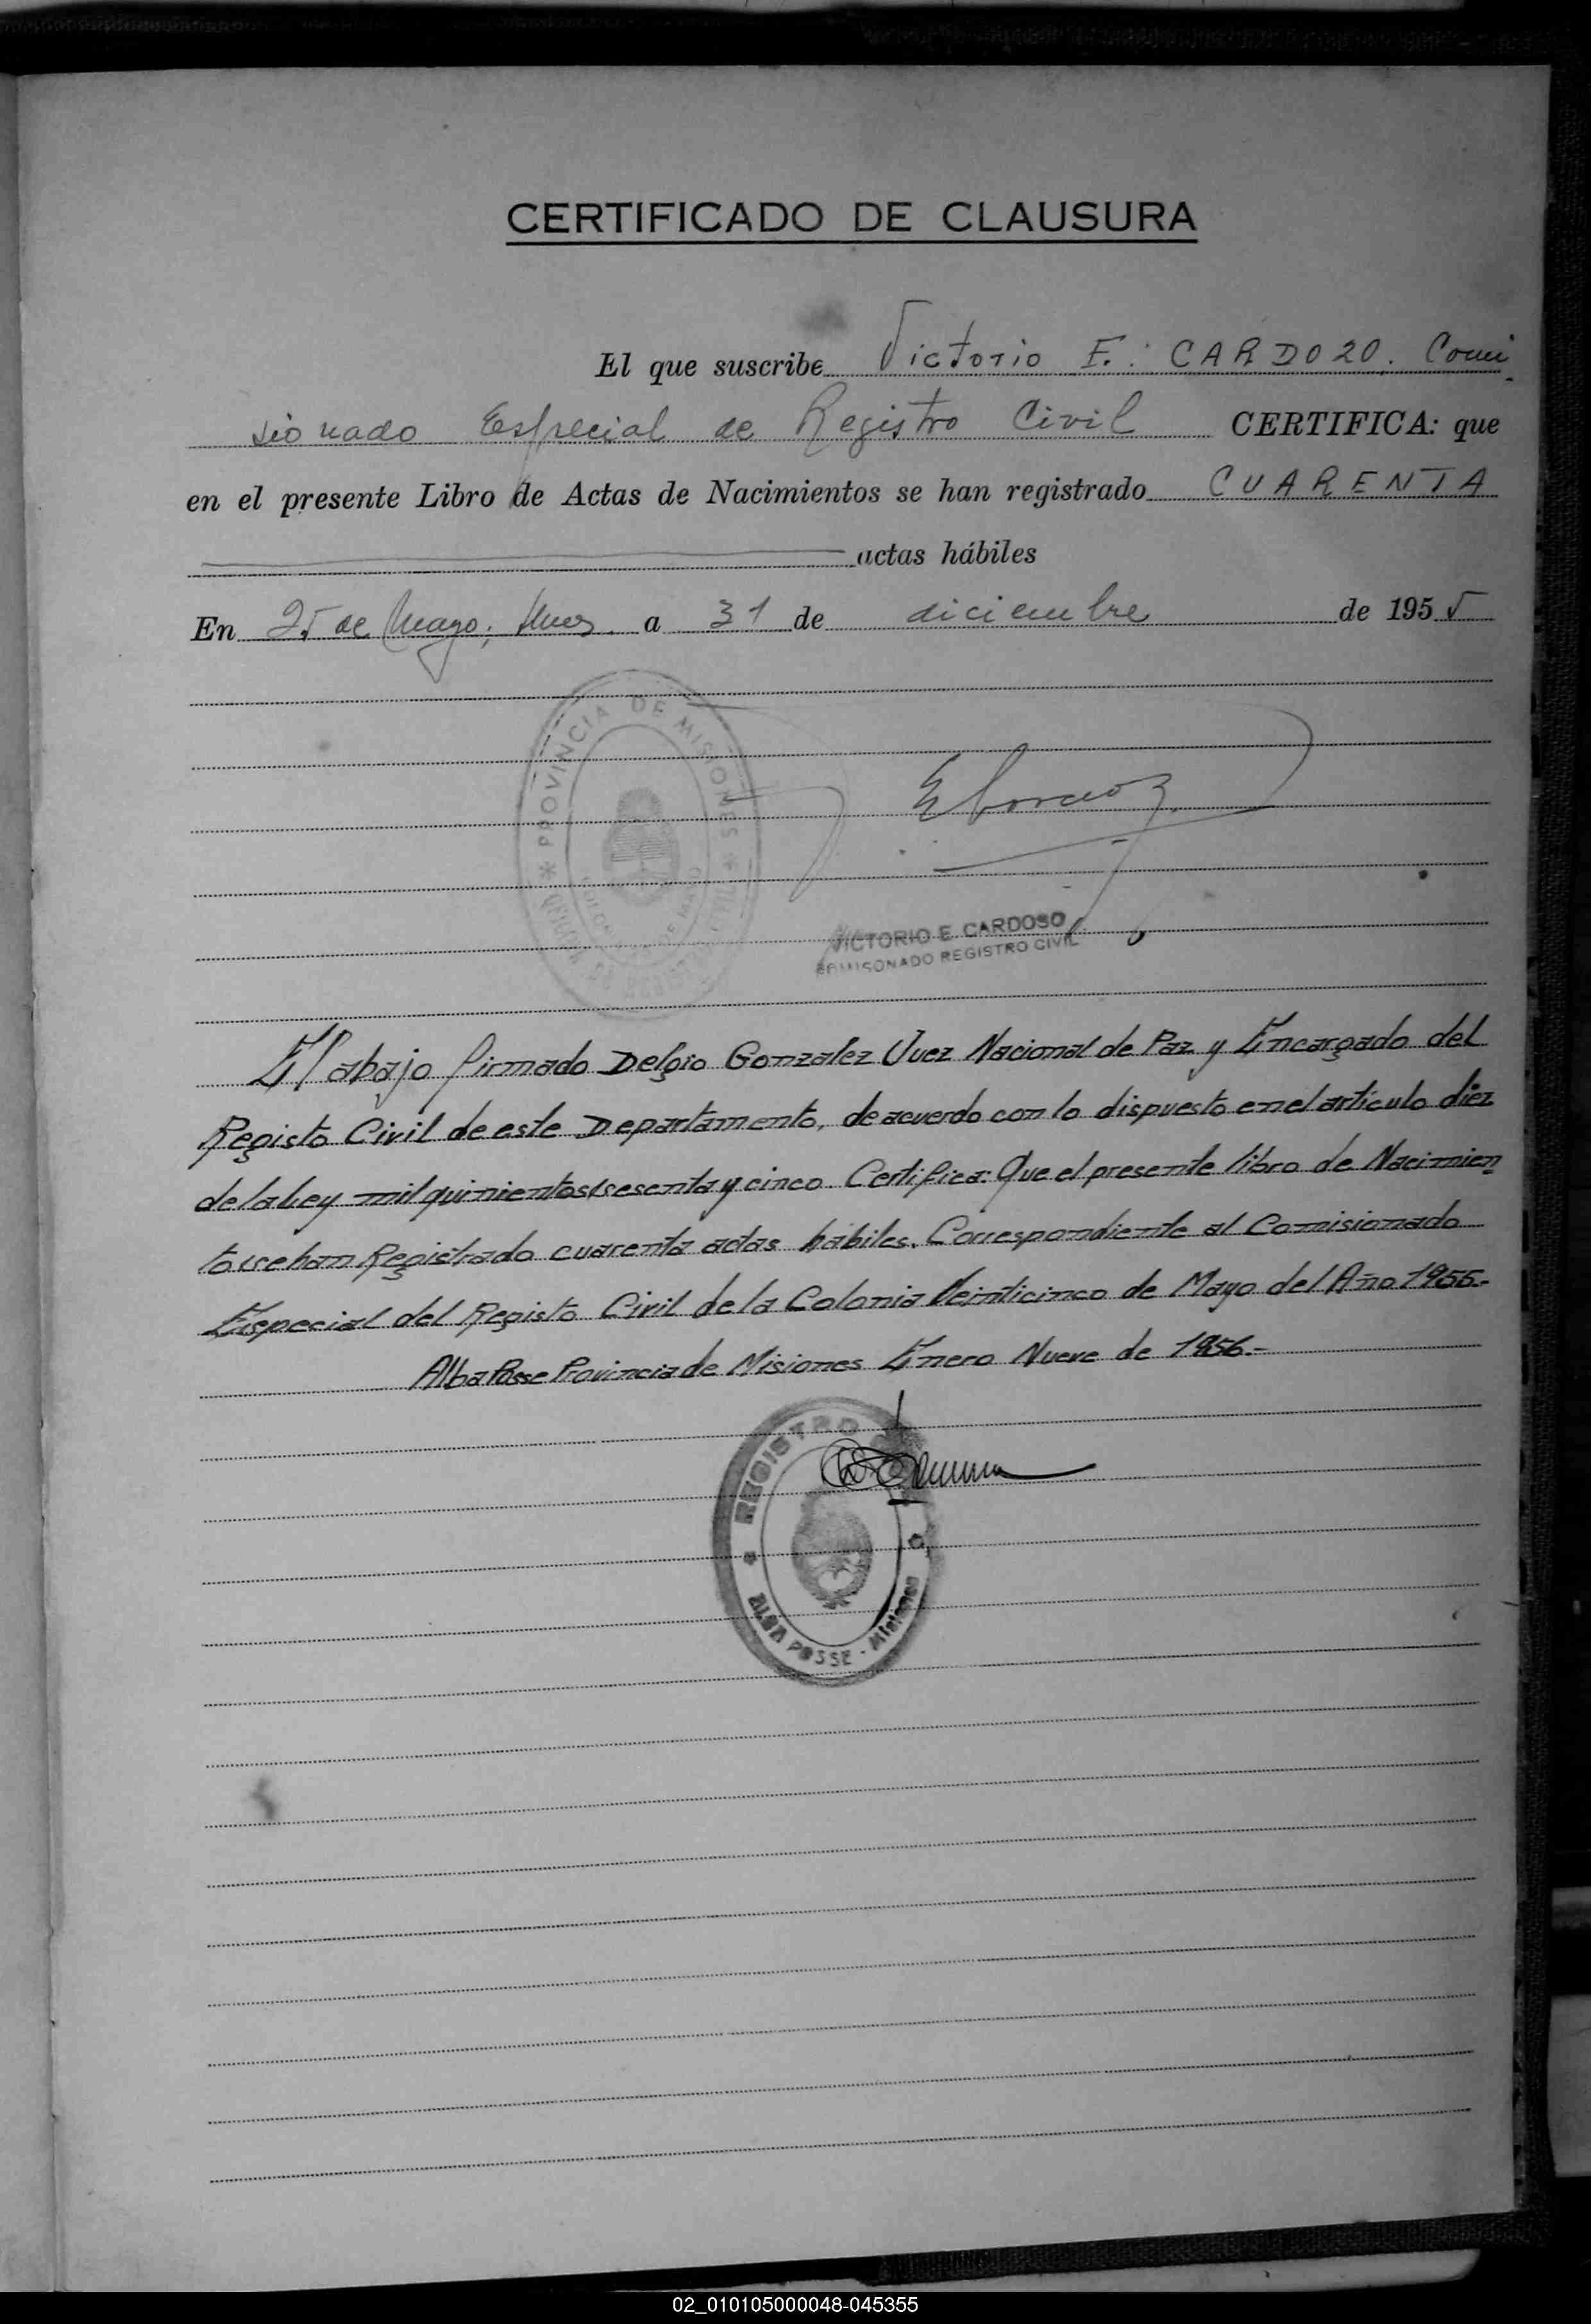 CERTIFICADO DE CLAUSURA
El que suscribe Victorio E. CARDOZO. Comi
sionado Especial de Registro Civil CERTIFICA: que
en el presente Libro de Actas de Nacimientos se han registrado CUARENTA
actas hábiles
En 25 de Mayo, Mnes. a 31 de diciembre de 1955
PROVINCIA DE MISIONES
VICTORIO E. CARDOSO
COMISONADO REGISTRO CIVIL
El abajo firmado Delgio Gonzalez Juez Nacional de Paz y Encargado del
Registo Civil de este Departamento, de acuerdo con lo dispuesto en el articulo diez
de la Ley mil quinientos sesenta y cinco. Certifica: Que el presente libro de Nacimien
to se han Registrado cuarenta actas hábiles. Correspondiente al Comisionado
Especial del Registo Civil de la Colonia Veinticinco de Mayo del Año 1955.-
Alba Posse Provincia de Misiones Enero Nueve de 1956.-
REGISTRO
ALBA POSSE - Misiones
02_010105000048-045355